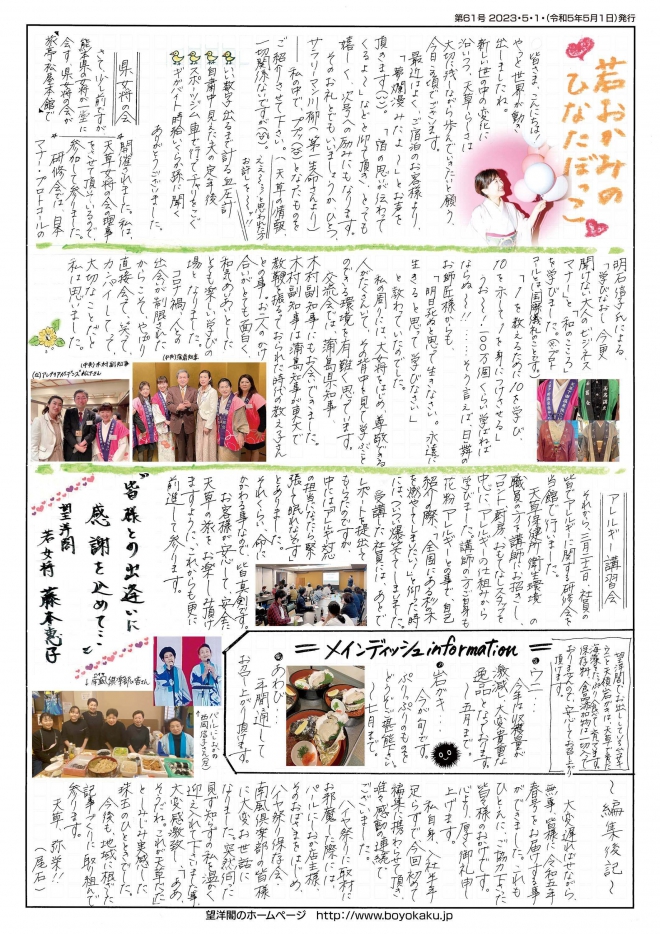 第61号 2023・5・1・(令和5年5月1日)発行
若おかみの
ひなたぼっこ
皆さま、こんにちは!
やっと世界が動き
出しましたね。
新しい世の中の変化に
沿いつつ、天草らしさは
大切に残しながら歩んでいきたいと願う、
今日この頃でございます。
最近はよく、ご宿泊のお客様より、
「夢爛漫みたよ〜」とお声を
頂きます(^^)。「宿の思いが伝わって
くるよ。」などと仰って頂き、とっても
嬉しく、次号への励みになります。
そのお礼もいいましょうか、ひとつ、
サラリーマン川柳(第一生命さんより)
〜私の中で、ププッ(笑)となったものを
ご紹介させて下さい。(天草の情報
一切関係ないですが(笑))
いい数字出るまで計る血圧計
スポーツジム車で行ってチャリをこぐ
自粛中見えた夫の定年後
ギガバイト時給いくらか孫に聞く
ありがとうございました。
県女将の会
さて、少し前ですが
熊本県の女将が一堂に
会す、県女将の会が
旅亭松屋本館で
開催されました。私は、
天草女将の会の理事
をさせて頂いているので、
参加して参りました。
研修会では、日本
マナー・プロトコールの
明石伸子氏による、
「学びなおし、今更
聞けない大人のビジネス
マナーと、和のこころ」
を学びました。(※プロト
コールとは国際儀礼のことです。)
「1を教えるために10を学び、
10を示して1を身につけさせる」
うお〜!100万個くらい学ばねば
ならぬ〜!!…そう言えば日舞の
お師匠様からも、
「明日死ぬと思って生きなさい。永遠に
生きると思って学びなさい」
と教わっていたのでした。
私の周りには大女将をはじめ尊敬できる
人がたくさんいて、その背中を見て学ぶこと
のできる環境を有難く思っています。
交流会では、蒲島県知事
木村副知事にもお会いできました。
木村副知事は蒲島知事が東大で
教鞭振るっておられた時の教え子さん
との事で、お二人のかけ
合いがとても面白く、
和気あいあいとした
とても楽しい学びの
場となりました。
コロナ禍、人との
出会いが制限された
からこそ、やっぱり
直接会って、笑って
カンパイしてって
大切なことだと
私は思いました。
(中央)蒲島知事
(中央)木村副知事
アレルギー講習会
それから、3月31日、社員の
皆でアレルギーに関する研修会を
当館で行いました。
天草保健所、衛生環境の
職員の方を講師にお招きし
フロント、厨房、おもてなしスタッフを
中心に、アレルギーの仕組みから
学びました。講師の方ご自身も
花粉アレルギーとの事で、自己
紹介の際、「全国にある杉木
を燃やしてしまいたい」と仰った時
には、つい爆笑でしました。
受講した社員には、あとで
レポートを提出して
もらうのですが、
中には「アレルギー対応
の担当になったら緊
張して眠れなそう」
とありました。
それくらい、命に
かかわる事なので、皆真剣です。
お客様が安心して、安全に
天草の旅をお楽しみ頂け
ますように、これからも更に
前進して参ります。
皆様との出逢いに
感謝を込めて…
望洋閣
若女将 藤本恵子
=メインディッシュ information=
望洋閣でお出ししている
ウニと天領岩がきは、天草で育った
海藻をたっぷり食べて育ってます。
保存料、食品添加物は一切入って
おりませんので、安心してお召し上がり
頂けます。
ウニ…
今年は収穫量が
激減、大変貴重な
逸品となっております。
〜五月まで。
岩ガキ…
今が旬です。
ぷりっぷりのものを
どうぞご堪能下さい。
〜七月まで。
あわび…
一年間通して
お召し上がり頂けます。
南風倶楽部の皆さん
パールにしおかの
西岡信子さん(右)
〜編集後記〜
大変遅ればせながら、
無事、皆様に令和五年
春号をお届けする事
ができました。これも
ひとえに、ご協力下さった
皆様のおかげです。
心より、厚く御礼申し
上げます。
私自身、入社半年
足らずで、今回初めて
編集に携わらせて頂き、
唯々感動の連続で
ございました。
ハイヤ祭りに取材に
お邪魔した際には、
パールにしおか店主様
そのおばさまをはじめ、
ハイヤ祭り保存会・
南風倶楽部の皆様
に大変お世話に
なりました。突然伺った
見ず知らずの私を温かく
迎え入れて下さいました事、
大変感激致し、「ああ、
そうだね。これが天草だった」
としみじみ実感した
珠玉のひとときでした。
今後も、地域に根ざした
記事づくりに取り組んで
参ります。
天草、弥栄!!
(尾石)
望洋閣のホームページ http://www.boyokaku.jp